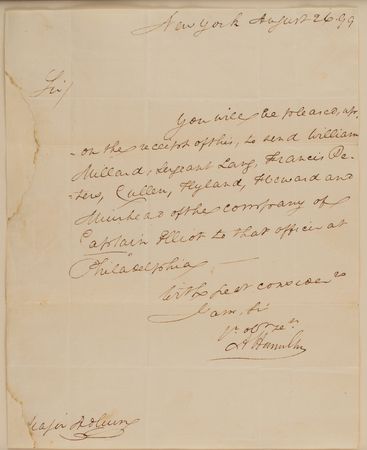 New York August 26 99
Sir/
You will be pleased, up-
on the receipt of this, to send William
Millard, Sergeant Lang, Francis Pe-
ters, Cullen, Hyland, Howard and
Muirhead of the company of
Captain Elliot to that officer at
Philadelphia
With great consider n
I am, Sir
Yr. ob. ser.
A Hamilton
Major